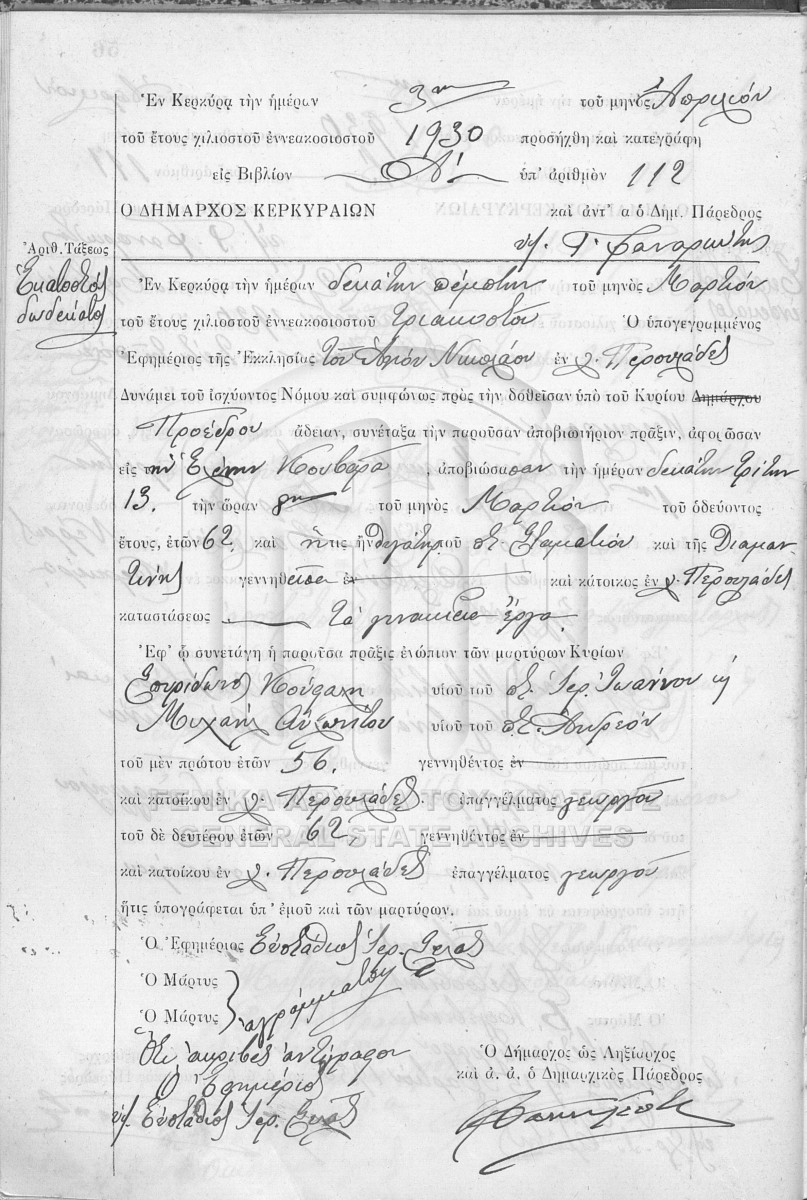 Ἐν Κερκύρᾳ τὴν ἡμέραν 3ην τοῦ μηνὸς Ἀπριλίου
τοῦ ἔτους χιλιοστοῦ ἐννεακοσιοστοῦ 1930 προσήχθη καὶ κατεγράφη
εἰς Βιβλίον Α! ὑπ' ἀριθμὸν 112
Ο ΔΗΜΑΡΧΟΣ ΚΕΡΚΥΡΑΙΩΝ καὶ ἀντ' α ὁ Δημ. Πάρεδρος
υγ. Γ.
Ἀριθ. Τάξεως
Ἑκατοστὸς
δωδέκατος
Ἐν Κερκύρᾳ τὴν ἡμέραν δεκάτην πέμπτην τοῦ μηνὸς Μαρτίου
τοῦ ἔτους χιλιοστοῦ ἐννεακοσιοστοῦ τριακοστοῦ Ὁ ὑπογεγραμμένος
Ἐφημέριος τῆς Ἐκκλησίας τοῦ Ἁγίου Νικολάου ἐν χ. Περουλάδες
Δυνάμει τοῦ ἰσχύοντος Νόμου καὶ συμφώνως πρὸς τὴν δοθεῖσαν ὑπὸ τοῦ Κυρίου Δημάρχου
Προέδρου ἄδειαν, συνέταξα τὴν παροῦσαν ἀποβιωτήριον πρᾶξιν, ἀφορῶσαν
εἰς τὴν Ἑλένην , ἀποβιώσασαν τὴν ἡμέραν δεκάτην τρίτην
13. τὴν ὥραν τοῦ μηνὸς Μαρτίου τοῦ ὁδεύοντος
ἔτους, ἐτῶν 62, καὶ ἥτις ἦν θυγάτηρ τοῦ ποτ. Σταματίου καὶ τῆς Διαμαν
τίνης γεννηθεῖσα ἐν καὶ κάτοικος ἐν χ. Περουλάδες
καταστάσεως τὰ γυναικεῖα ἔργα
Ἐφ' ᾧ συνετάγη ἡ παροῦσα πρᾶξις ἐνώπιον τῶν μαρτύρων Κυρίων
Σπυρίδωνος υἱοῦ τοῦ ποτ. Ἱερ. Ἰωάννου κ
Μιχαὴλ υἱοῦ τοῦ ποτ. Ἀνδρέου
τοῦ μὲν πρώτου ἐτῶν 56. γεννηθέντος ἐν
καὶ κατοίκου ἐν χ. Περουλάδες ἐπαγγέλματος γεωργοῦ
ΓΕΝΙΚΑ ΑΡΧΕΙΑ ΤΟΥ ΚΡΑΤΟΥΣ
τοῦ δὲ δευτέρου ἐτῶν 62, γεννηθέντος ἐν
GENERAL STATE ARCHIVES
καὶ κατοίκου ἐν χ. Περουλάδες ἐπαγγέλματος γεωργοῦ
ἥτις ὑπογράφεται ὑπ' ἐμοῦ καὶ τῶν μαρτύρων.
Ὁ Ἐφημέριος Εὐστάθιος Ἱερ.
Ὁ Μάρτυς
Ὁ Μάρτυς ἀγράμματοι
Ὅτι ἀκριβὲς ἀντίγραφον
Ὁ Ἐφημέριος
υγ. Εὐστάθιος Ἱερ.
Ὁ Δήμαρχος ὡς Ληξίαρχος
καὶ ἀ. ἀ. ὁ Δημαρχικὸς Πάρεδρος